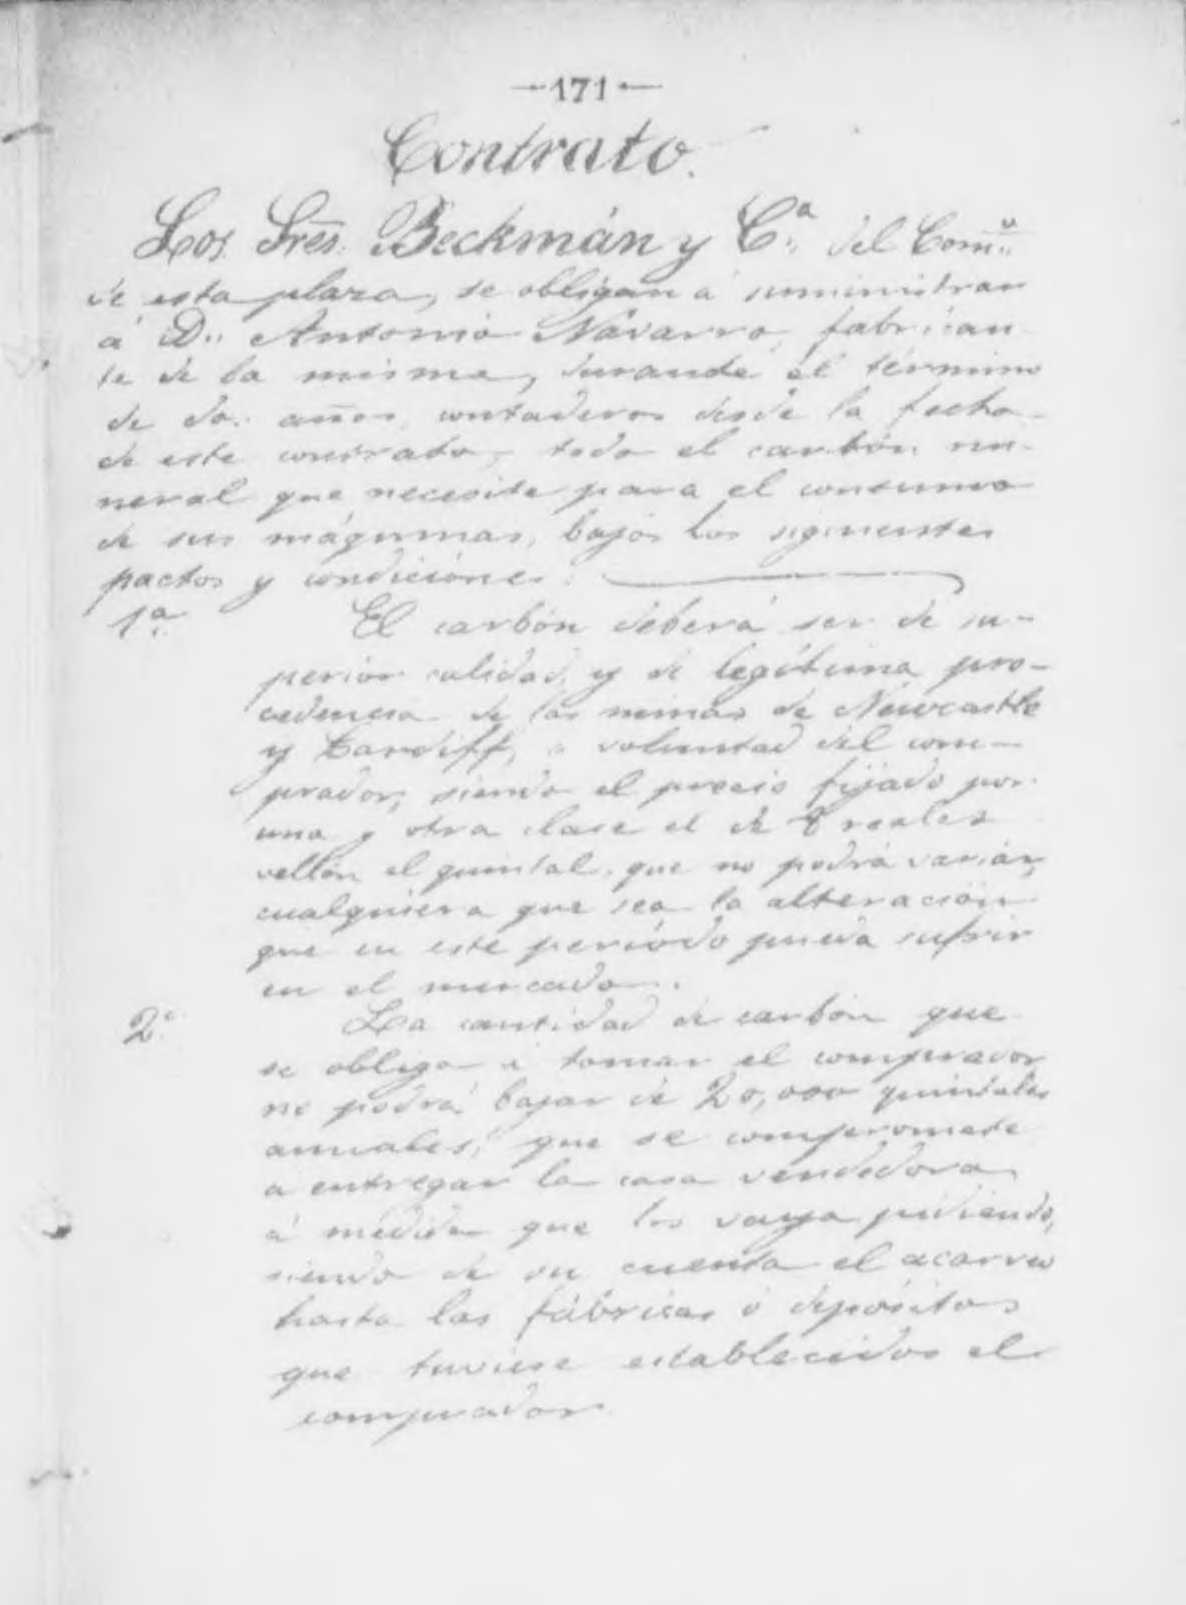 —171—
Contrato.
Los Sres. Beckmán y C.ª del Com.º
de esta plaza, se obligan á suministrar
á D.n Antonio Navarro, fabrican-
te de la misma, durante el término
de dos años, contaderos desde la fecha
de este contrato, todo el carbón mi-
neral que necesite para el consumo
de sus máquinas, bajo los siguientes
pactos y condiciones:
1.ª El carbón deberá ser de su-
perior calidad, y de legítima pro-
cedencia de las minas de Newcastle
y Cardiff, á voluntad del com-
prador, siendo el precio fijado por
una y otra clase el de 8 reales
vellón el quintal, que no podrá variar,
cualquiera que sea la alteración
que en este período pueda sufrir
en el mercado.
2.ª La cantidad de carbón que
se obliga á tomar el comprador
no podrá bajar de 20,000 quintales
anuales, que se compromete
a entregar la casa vendedora
á medida que los vaya pidiendo,
siendo de su cuenta el acarreo
hasta las fábricas ó depósitos
que tuviese establecidos el
comprador.